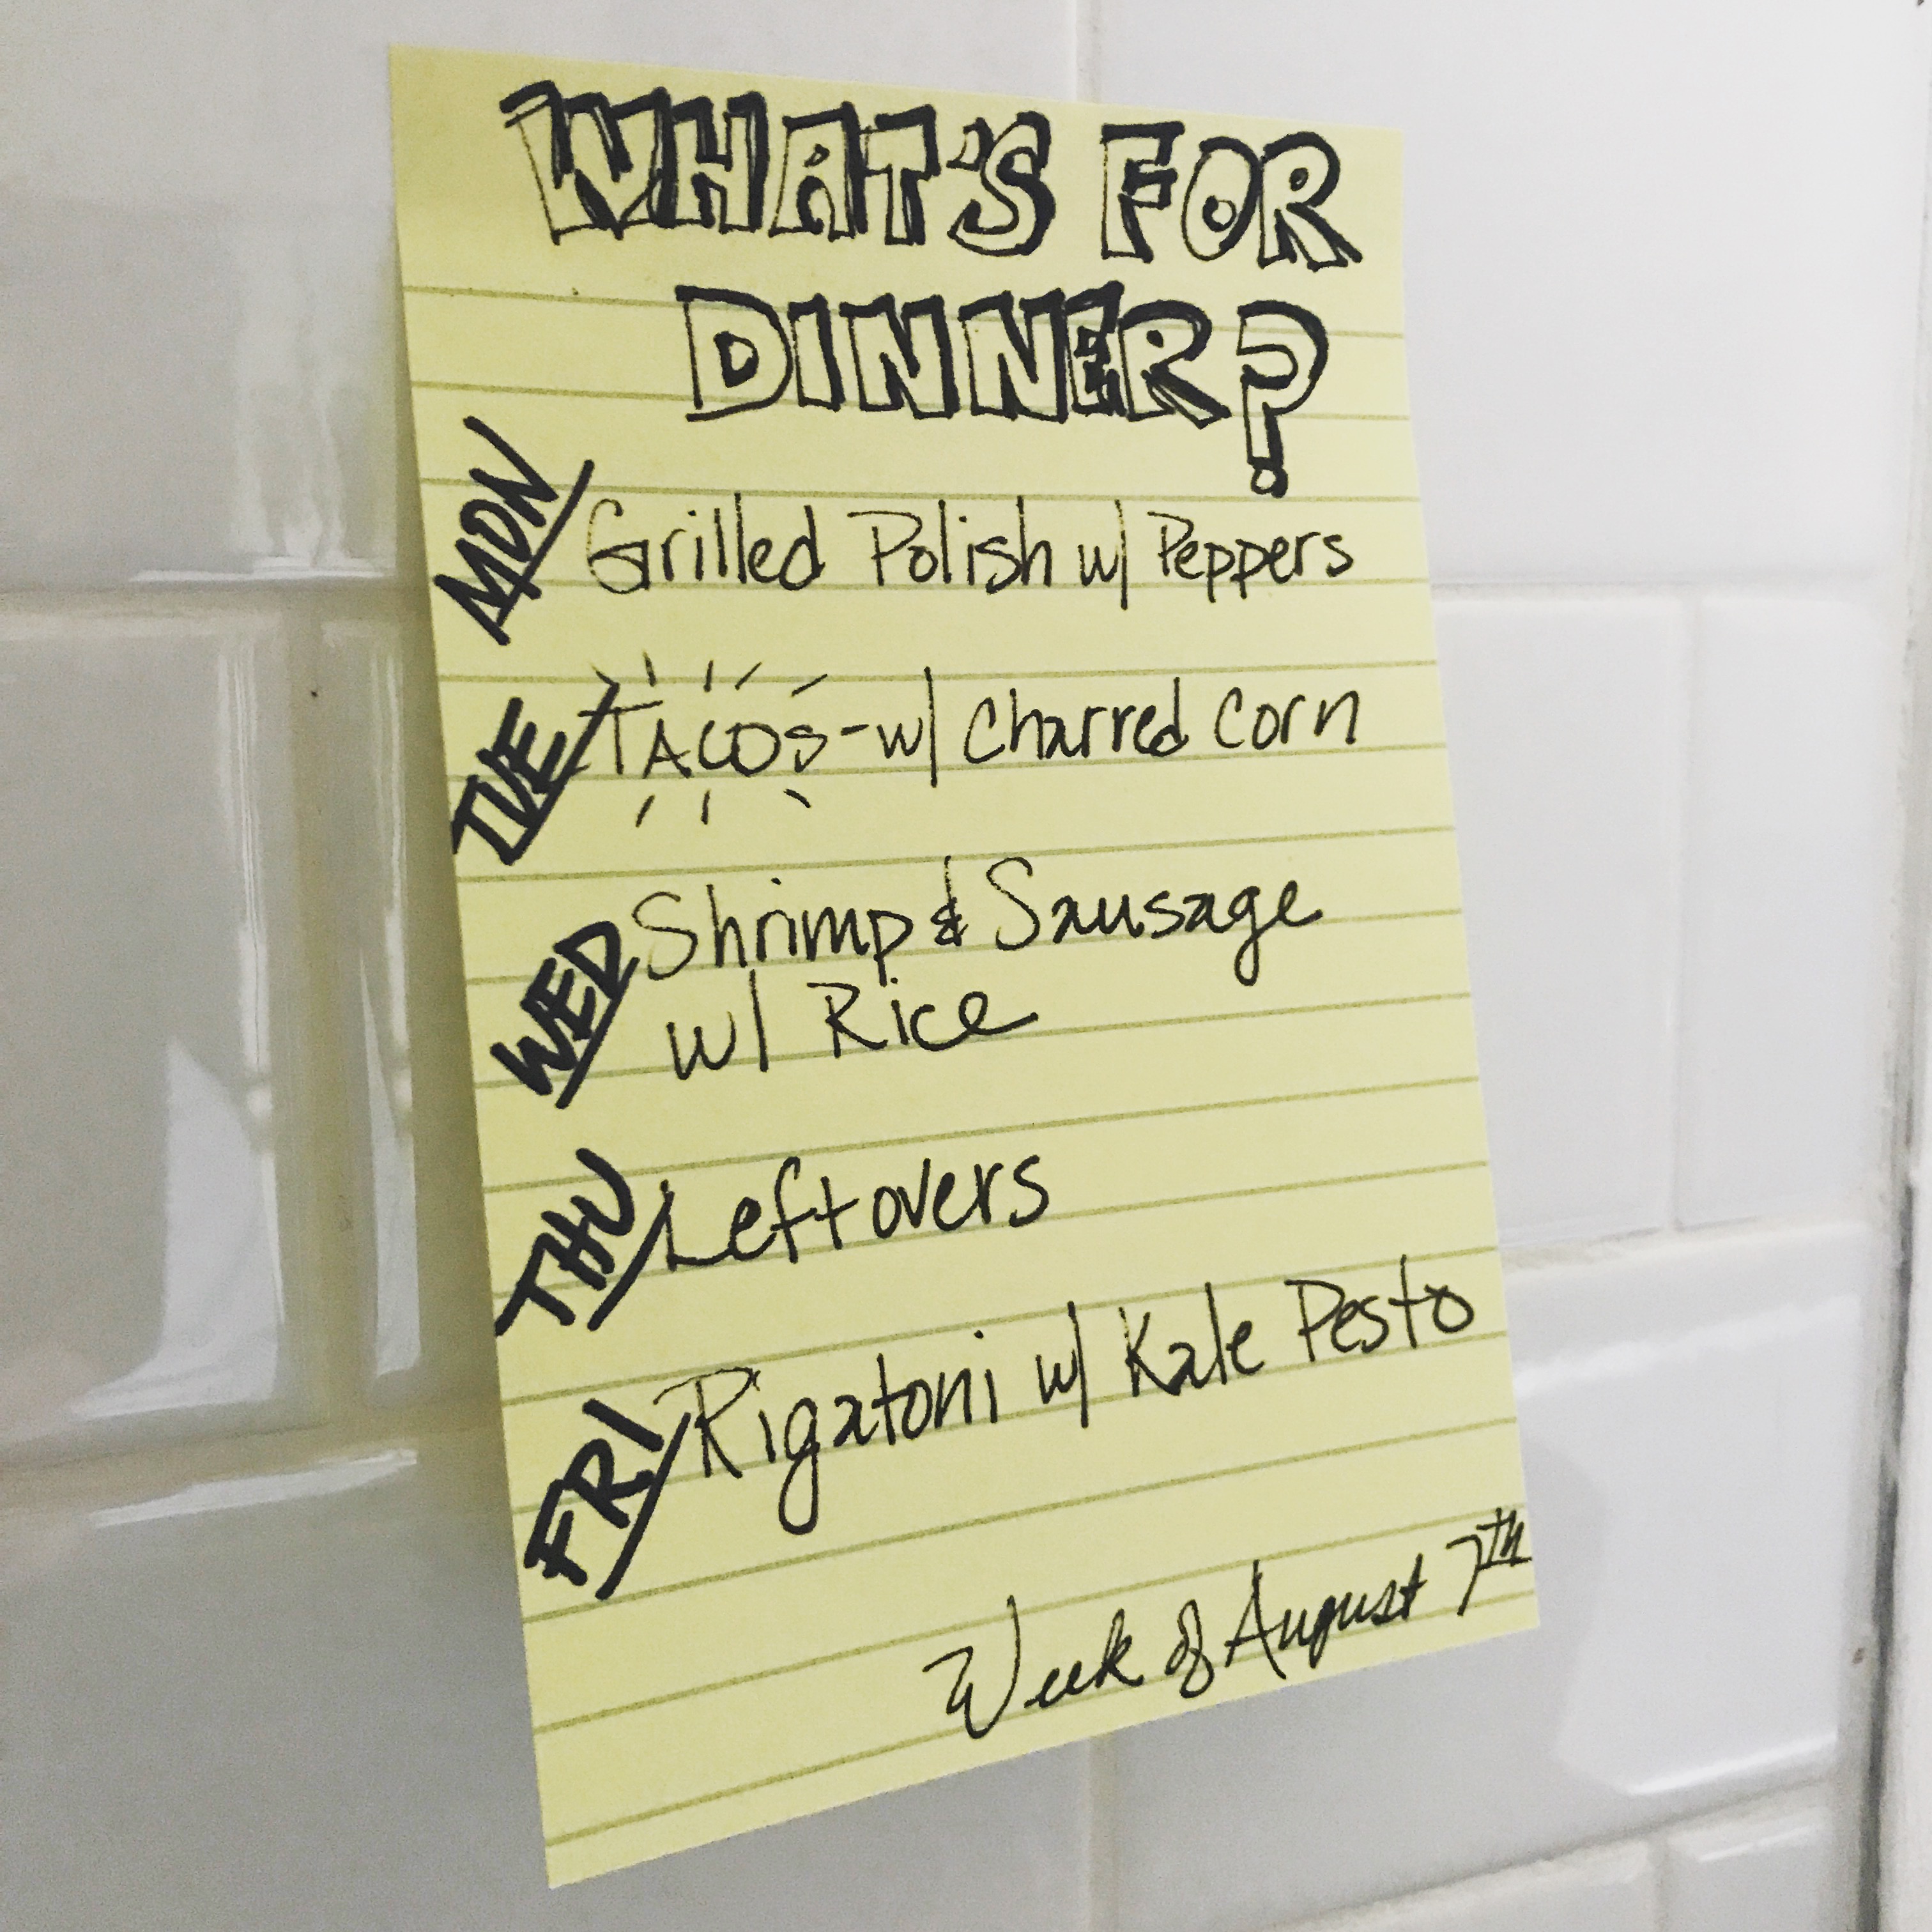 WHAT'S FOR
DINNER?
MON Grilled Polish w/ Peppers
TUE TACOS - w/ Charred Corn
WED Shrimp & Sausage
w/ Rice
THU Leftovers
FRI Rigatoni w/ Kale Pesto
Week of August 7th